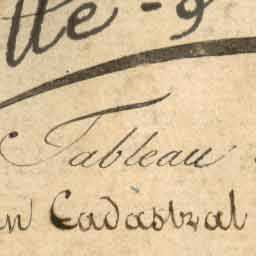 tte - 9
Tableau
n Cadastral